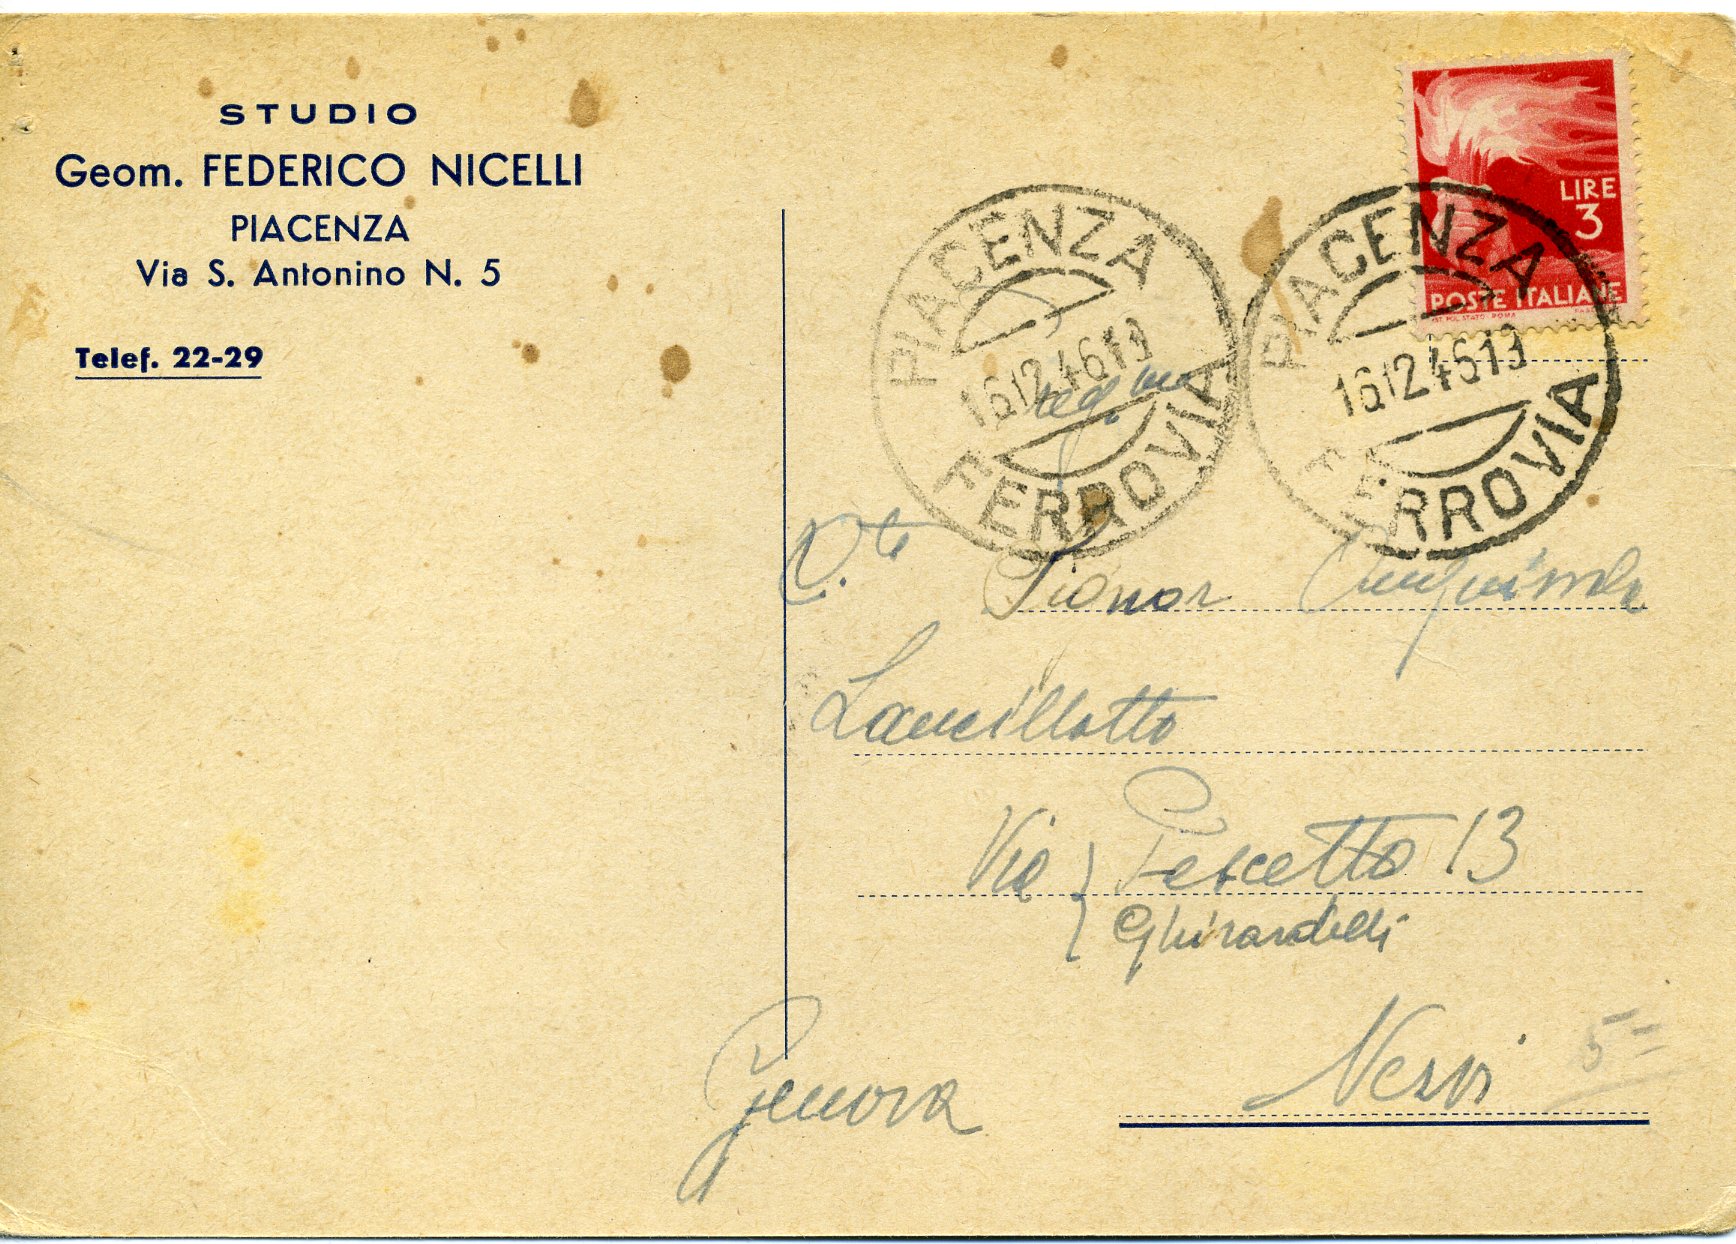 STUDIO
Geom. FEDERICO NICELLI
PIACENZA
Via S. Antonino N. 5
Telef. 22-29
LIRE
3
POSTE ITALIANE
PIACENZA
16.12.46.19
FERROVIA
PIACENZA
16.12.46.19
FERROVIA
Signor
Lancillotto
Via Pescetto 13
Ghirardelli
Nervi 5
Genova